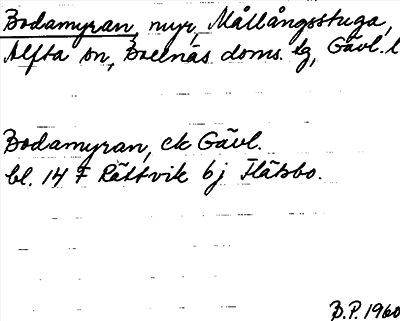 Bodamyran, myr, Mållångsstuga,
Alfta sn, Bollnäs doms. lg, Gävl. l
Bodamyran, ek Gävl.
bl. 14 F Rättvik 6j Flätsbo.
B.P. 1960